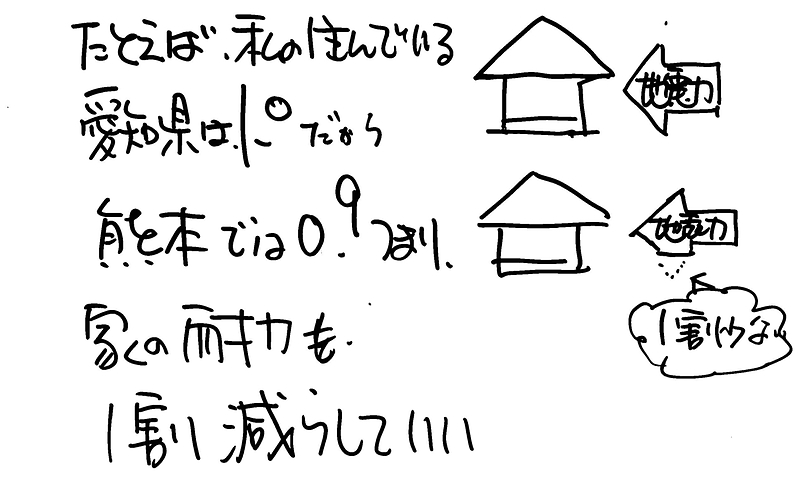 たとえば、私の住んでいる
愛知県は、1.0だから
熊本では0.9つまり、
家の耐力も
1割減らしていい
地震力
地震力
1割少ない